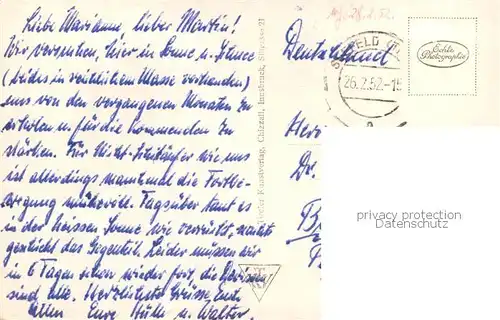 Liebe Marianne, lieber Martin!
Wir versuchen, hier in Sonne u.
(beides in reichlichem Masse vorhanden)
uns von den vergangenen Monaten zu
erholen u. für die kommenden zu
stärken. Für Nicht-Skiläufer wie uns
ist allerdings manchmal die Fortbe-
wegung mühevoll. Tagsüber taut es
in der heissen Sonne wie verrückt, nachts
geschieht das Gegenteil. Leider müssen wir
in 6 Tagen schon wieder fort, die Devisen
sind alle. Herzlichste Grüsse Euch
allen Eure u. Walter.
Tiroler Kunstverlag, Chizzali, Innsbruck,
Deutschland
SEEFELD
26.2.52.-15
Echte
Photographie
Herr
Dr.
privacy protection
www.oldthing.com